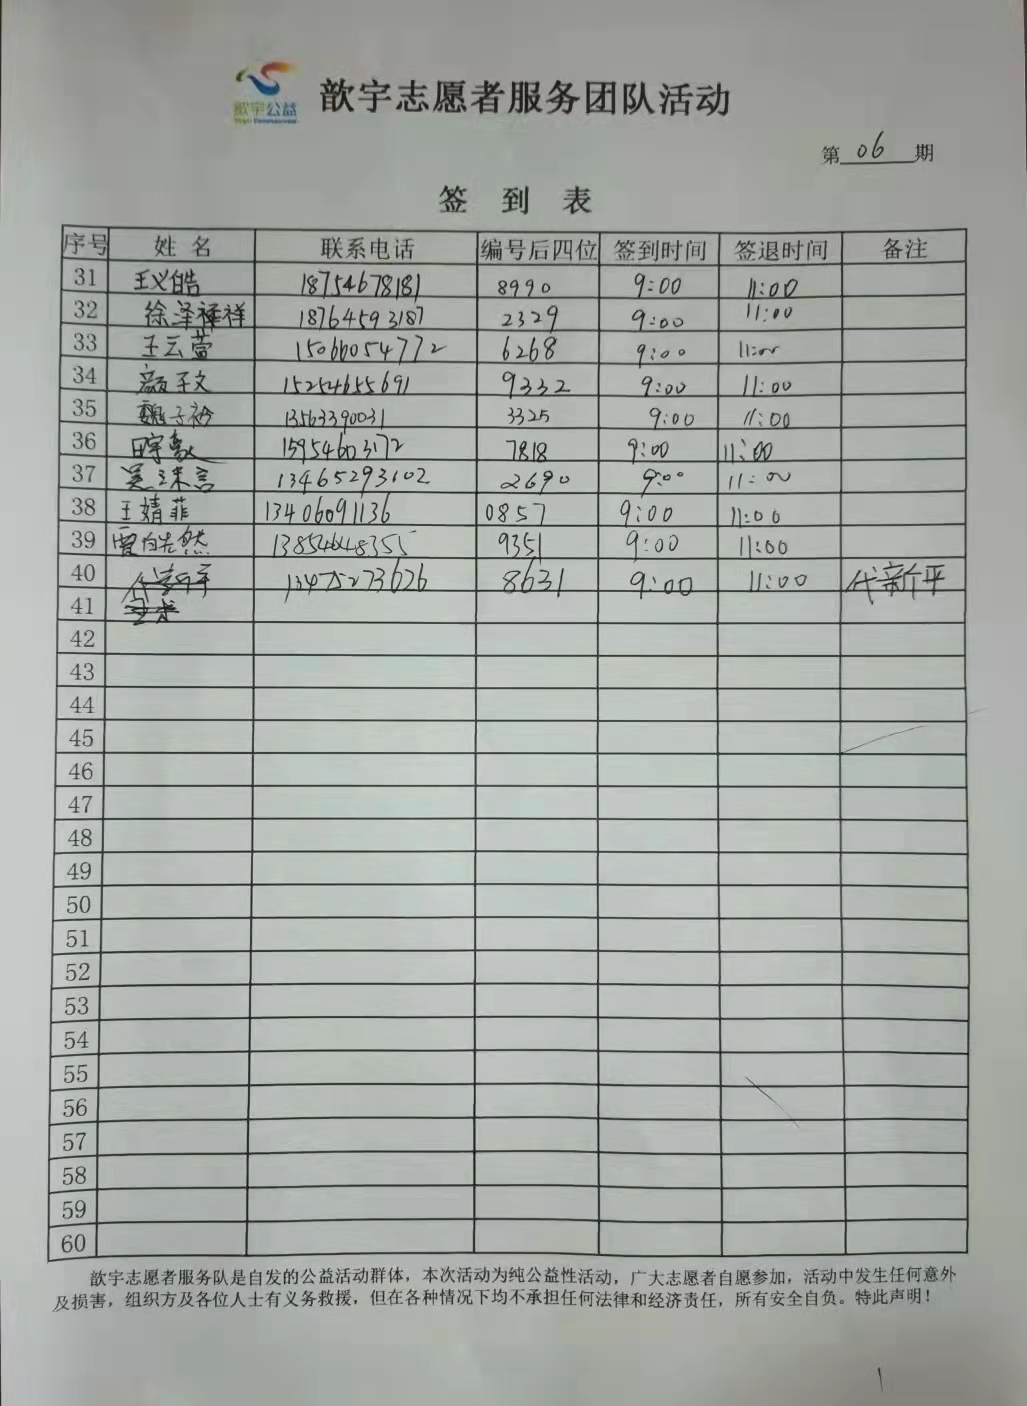 歆宇公益
歆宇志愿者服务团队活动
第 06 期
签 到 表
序号 姓 名 联系电话 编号后四位 签到时间 签退时间 备注
31 王义皓 18754678181 8990 9:00 11:00
32 徐泽祥 18764593187 2329 9:00 11:00
33 王云萱 15066054772 6268 9:00 11:00
34 颜子文 15254655691 9332 9:00 11:00
35 魏子衿 13563390031 3325 9:00 11:00
36 15954603172 7818 9:00 11:00
37 13465293102 2690 9:00 11:00
38 王婧菲 13406091136 0857 9:00 11:00
39 贾皓然 13854648355 9351 9:00 11:00
40 13475273626 8631 9:00 11:00 代新平
41
42
43
44
45
46
47
48
49
50
51
52
53
54
55
56
57
58
59
60
歆宇志愿者服务队是自发的公益活动群体，本次活动为纯公益性活动，广大志愿者自愿参加，活动中发生任何意外
及损害，组织方及各位人士有义务救援，但在各种情况下均不承担任何法律和经济责任，所有安全自负。特此声明！